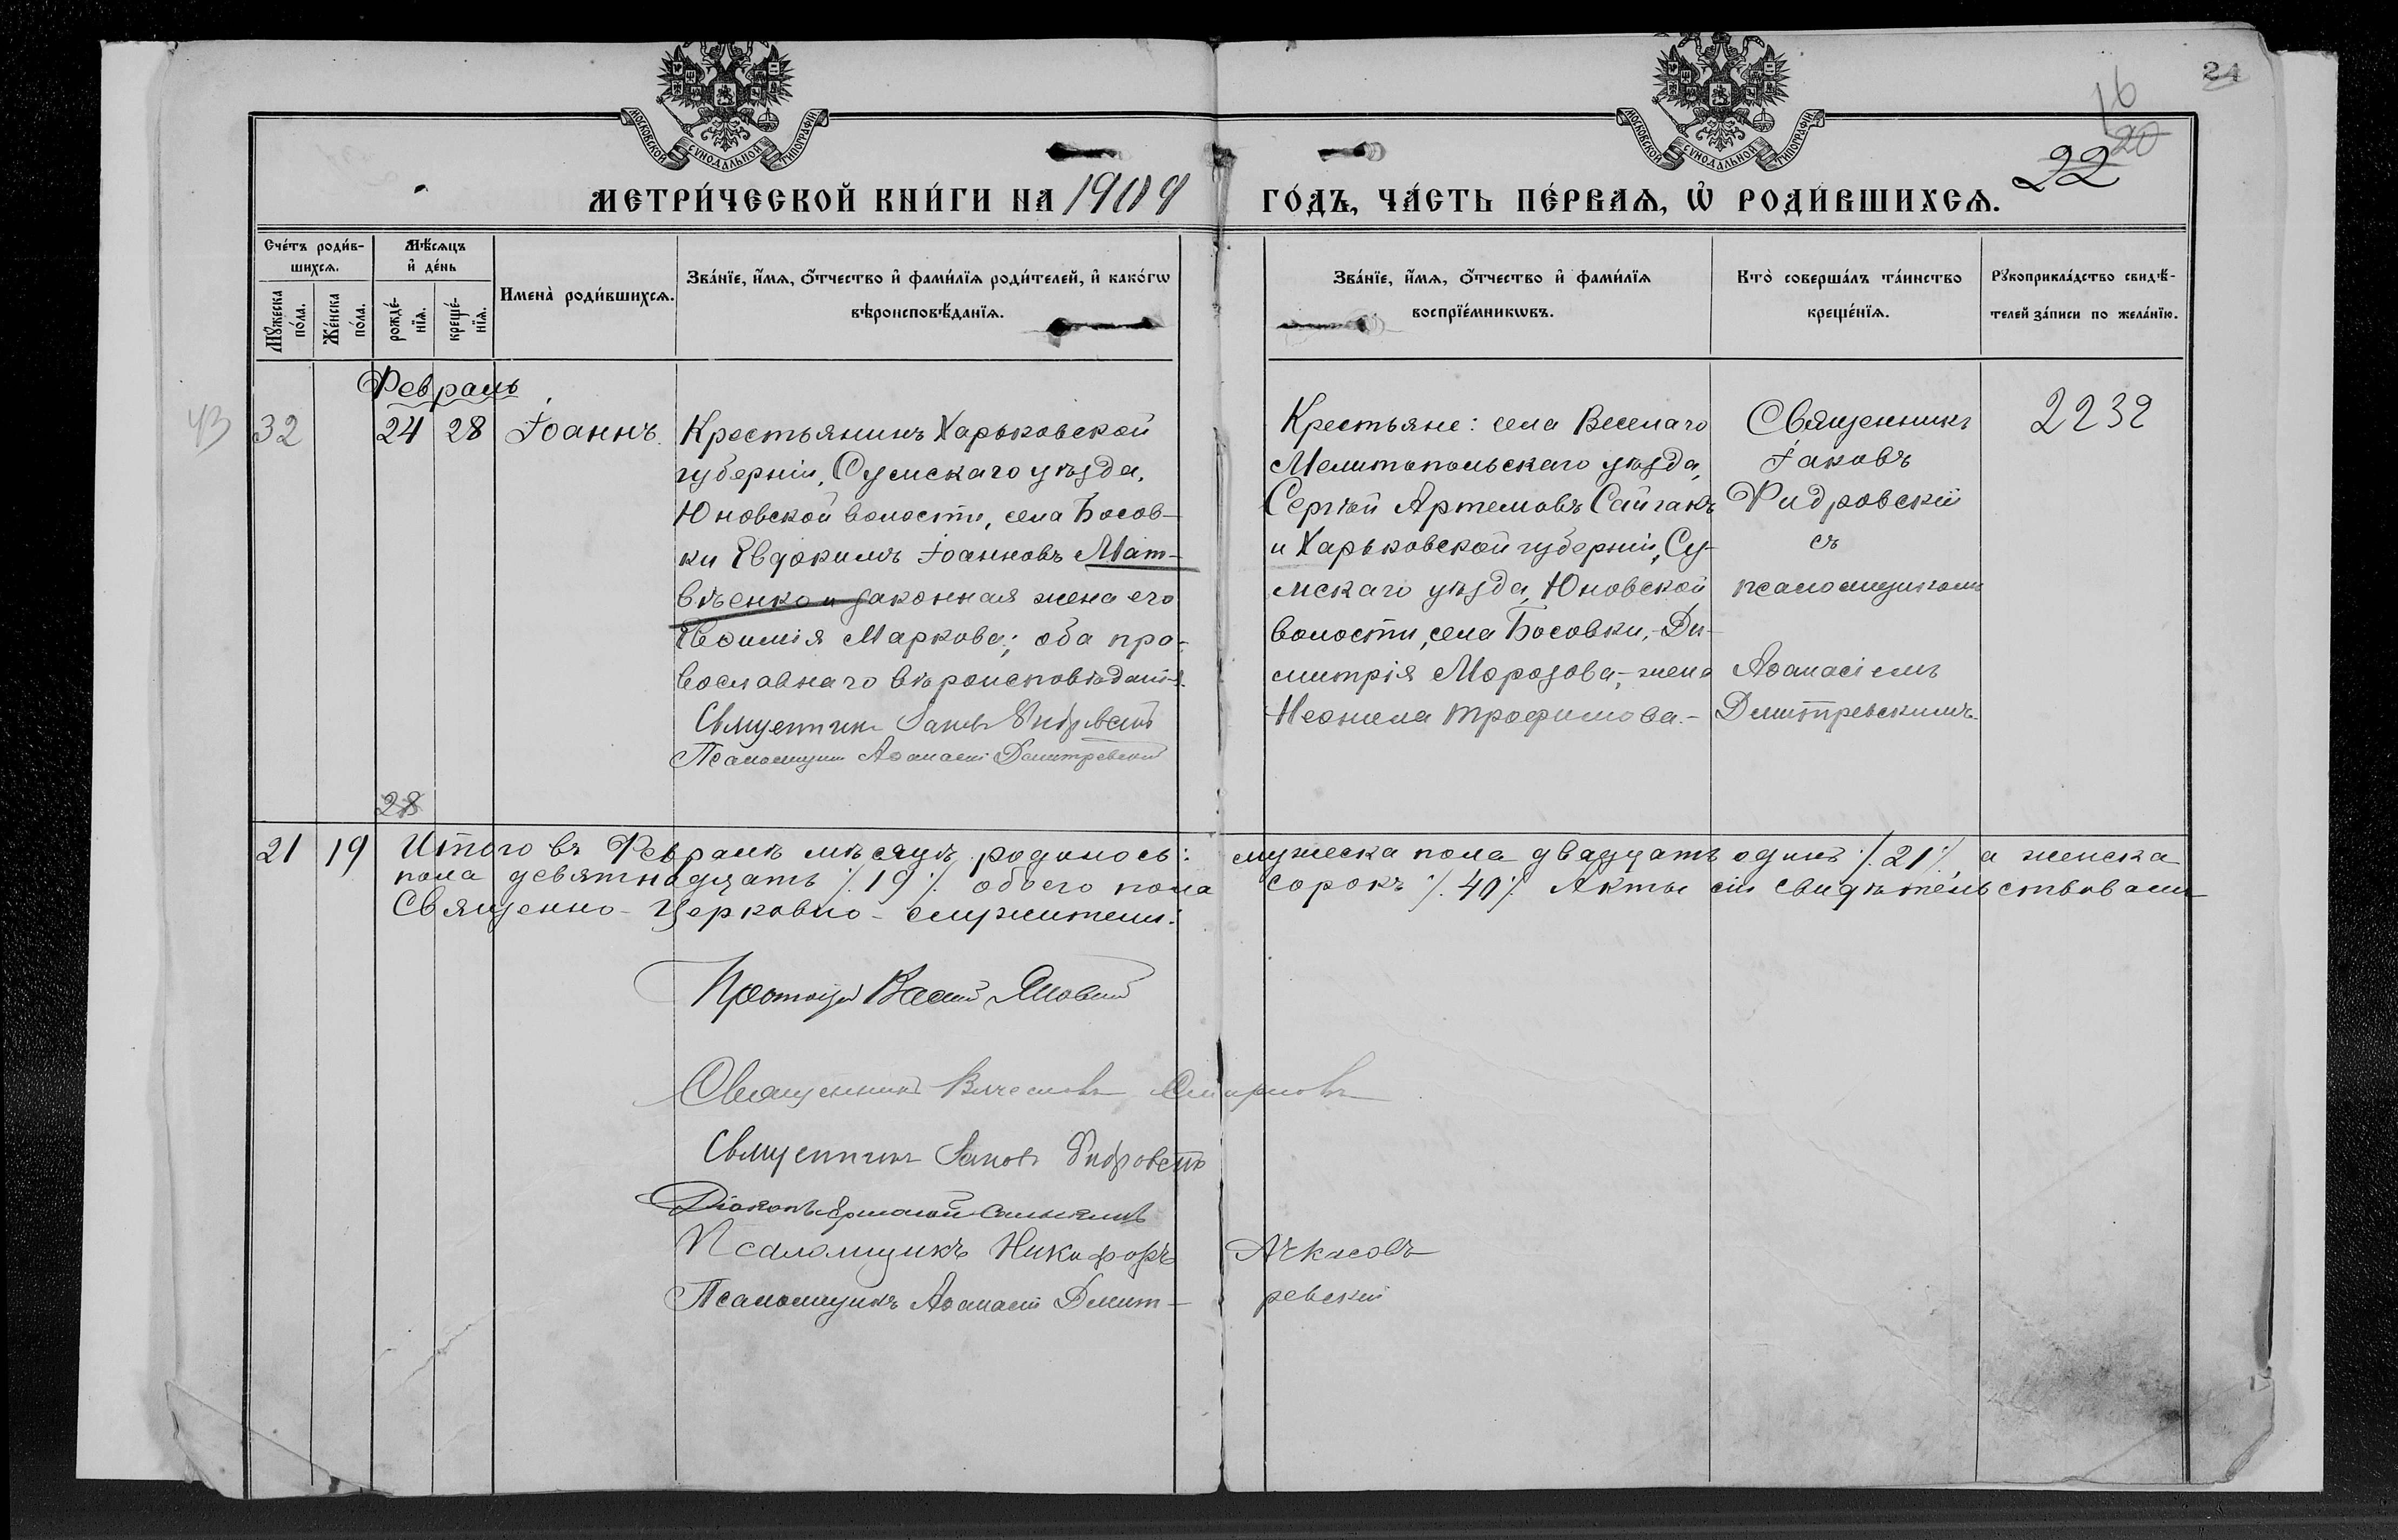 МОСКОВСКОЙ СѴНОДАЛЬНОЙ ТИПОГРАФІИ
МОСКОВСКОЙ СѴНОДАЛЬНОЙ ТИПОГРАФІИ
24
16
20
22
МЕТРИ́ЧЕСКОЙ КНИ́ГИ НА 1909
ГО́ДЪ, ЧА́СТЬ ПЕ́РВАѦ, Ѡ РОДИ́ВШИХСѦ.
Сче́тъ роди́в-
шихсѧ.
Мꙋ́жеска
по́ла.
Же́нска
по́ла.
Мѣ́сѧцъ
и҆ де́нь
рожде́-
нїѧ.
креще́-
нїѧ.
Имена̀ роди́вшихсѧ.
Зва́нїе, и҆́мѧ, ѻ҆́тчество и҆ фами́лїѧ роди́телей, и҆ како́гѡ
вѣроисповѣ́данїѧ.
Зва́нїе, и҆́мѧ, ѻ҆́тчество и҆ фами́лїѧ
воспрїе́мникѡвъ.
Кто̀ соверша́лъ та́инство
креще́нїѧ.
Рꙋкоприкла́дство свидѣ́-
телей за́писи по жела́нїю.
Февраль
43
32
24
28
Іоаннъ.
Крестьянинъ Харьковской
губерніи, Сумскаго уѣзда,
Юновской волости, села Босов-
ки Евдокимъ Іоанновъ Мат-
вѣенко и законная жена его
Евѳимія Маркова; оба пра-
вославнаго вѣроисповѣданія.
Священникъ Іаковъ Фидровскій
Псаломщикъ Аѳанасій Дмитревскій
Крестьяне: села Веселаго
Мелитопольскаго уѣзда,
Сергѣй Артемовъ Сайгакъ
и Харьковской губерніи, Су-
мскаго уѣзда, Юновской
волости, села Босовки, Ди-
митрія Морозова,- жена
Неонила Трофимова.-
Священникъ
Іаковъ
Фидровскій
съ
псаломщикомъ
Аѳанасіемъ
Дмитревскимъ.
2232
28
21
19
Итого въ Февралѣ мѣсяцѣ родилось: мужеска пола двадцать одинъ ⁒ 21 ⁒ а женска
пола девятнадцать ⁒ 19 ⁒ обоего пола сорокъ ⁒ 40 ⁒ Акты сіи свидѣтельствовали
Священно-Церковно-служители:
Протоіерей Василій
Священникъ Вячеславъ Смирновъ
Священникъ Іаковъ Фидровскій
Діаконъ
Псаломщикъ Никифоръ Ачкасовъ
Псаломщикъ Аѳанасій Дмит-ревскій